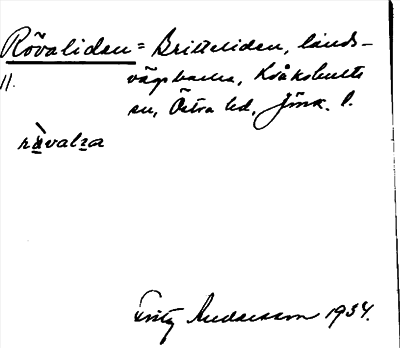 Rövaliden = Britteliden, lands-
vägsbacke, Kråkshults
sn, Östra hd, Jönk. l.
11.
rävalɪa
Fritz Andersson 1934.